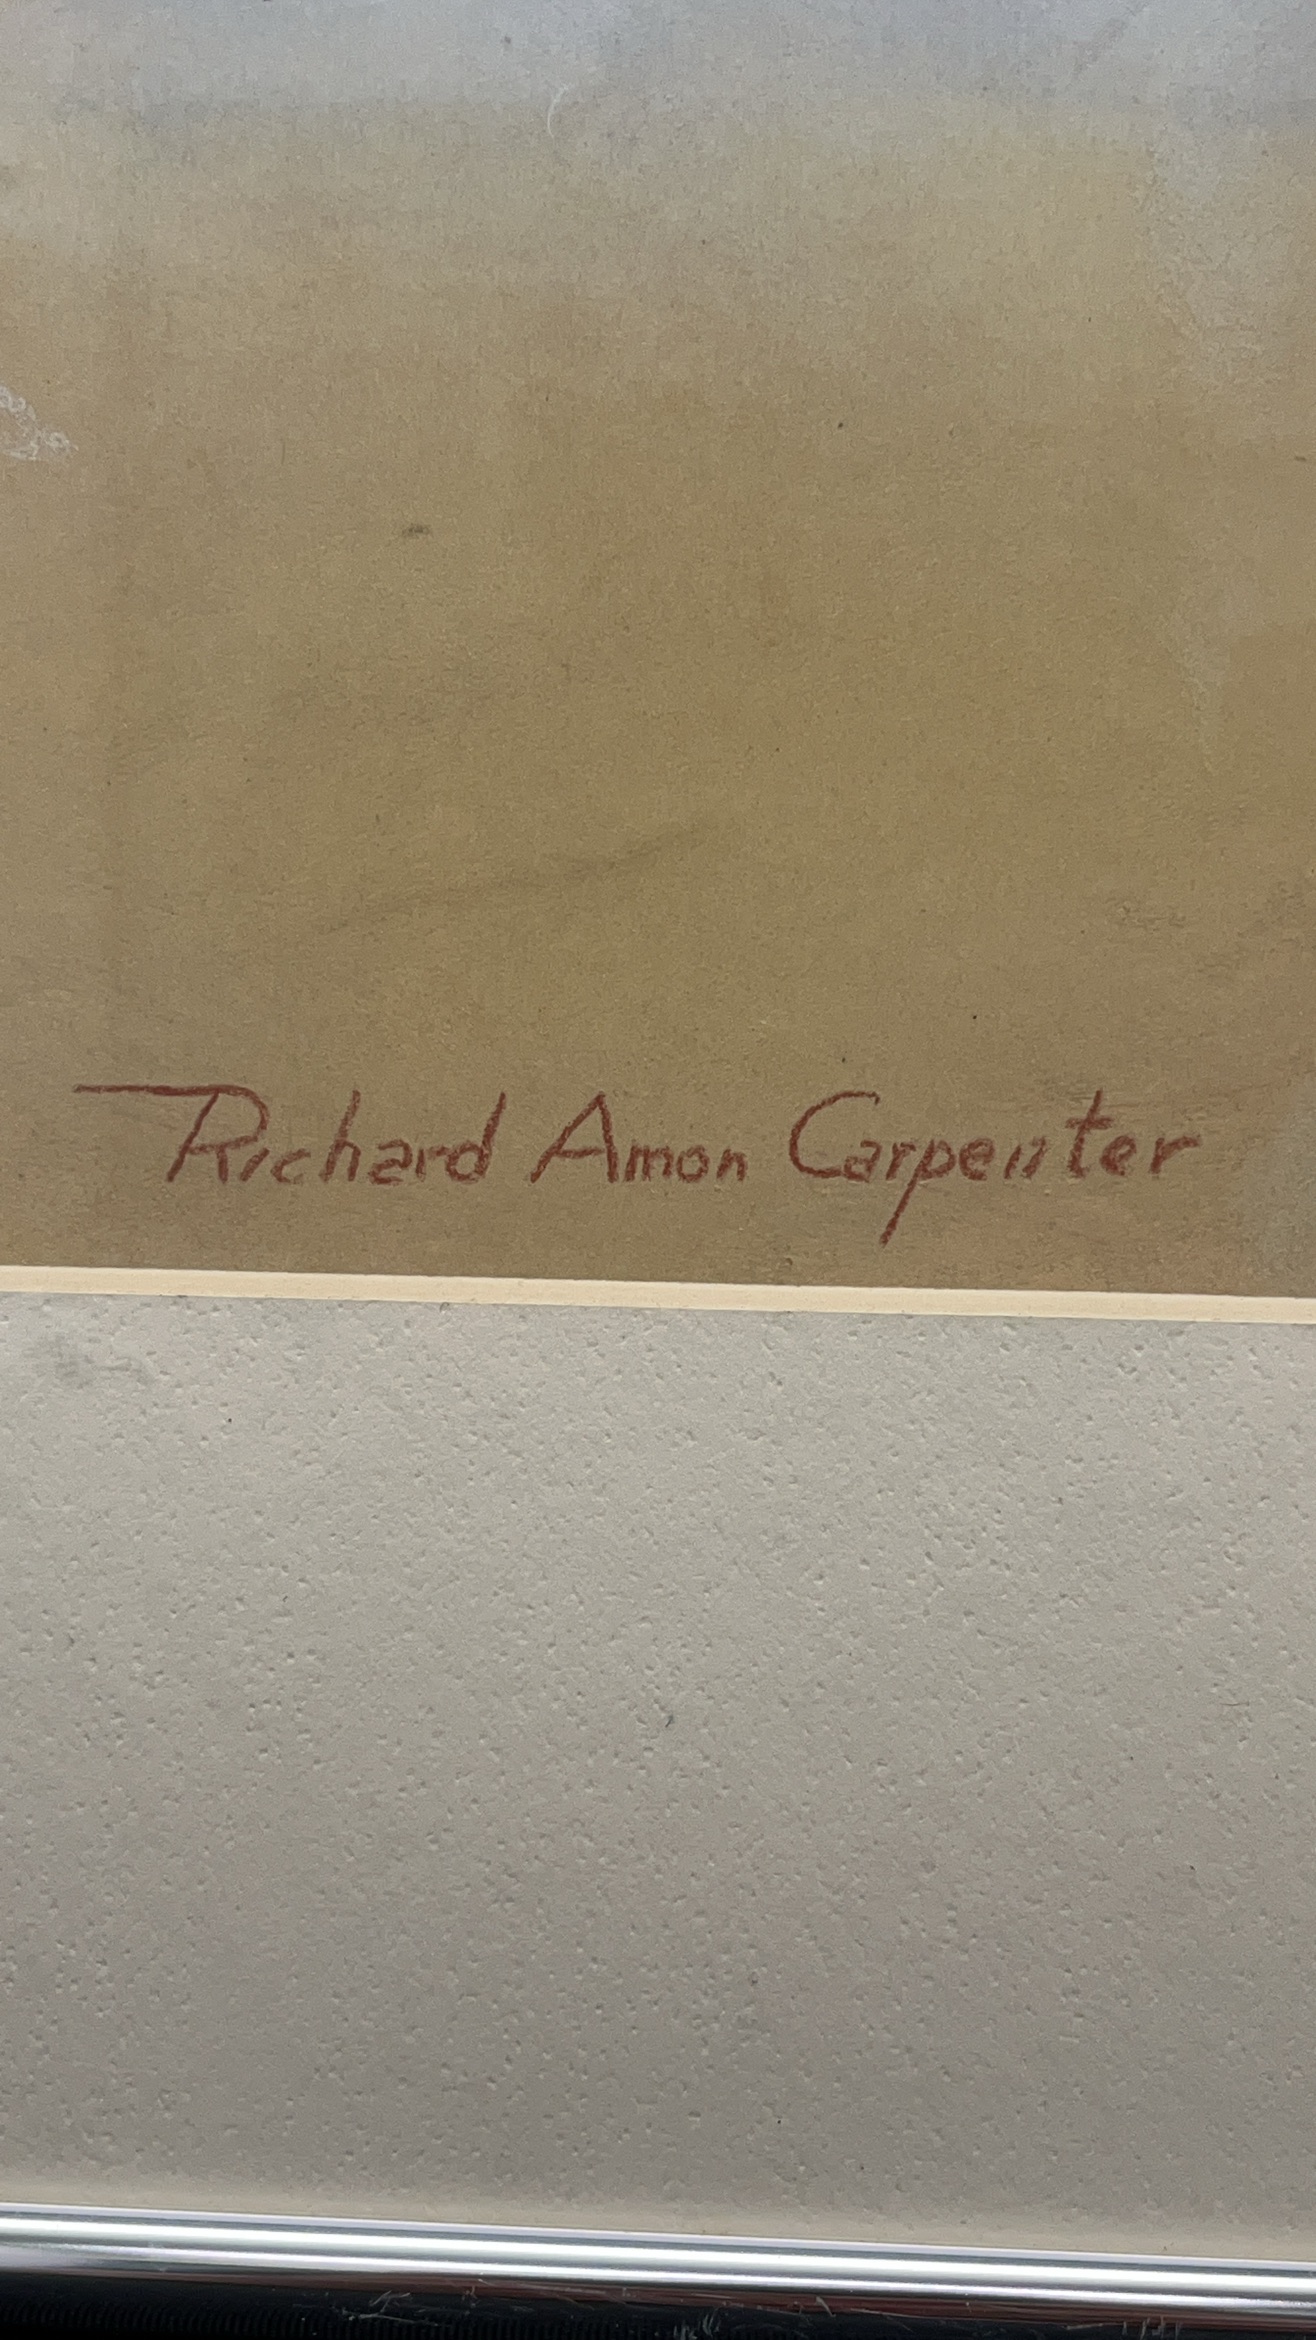 Richard Amon Carpenter